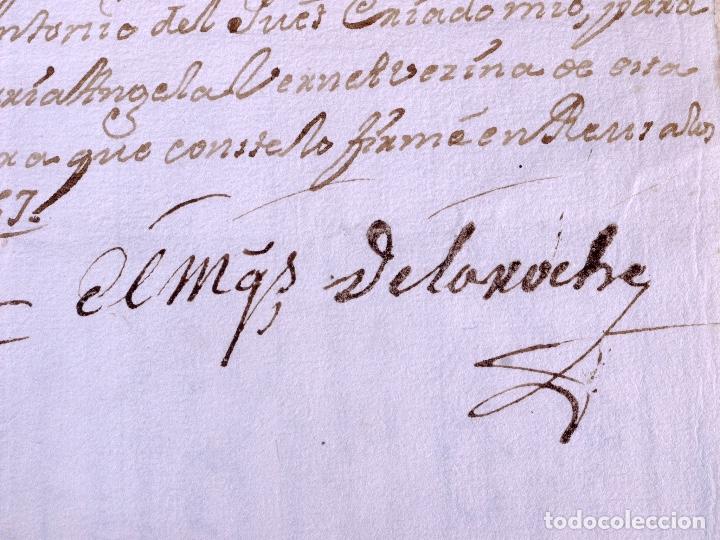 ntonio del Jues Criado mio, para
ria Angela Vernet vezina de esta
ra que conste lo firmé en Reus a los
57.
el Mqs, Delaroche
todocoleccion